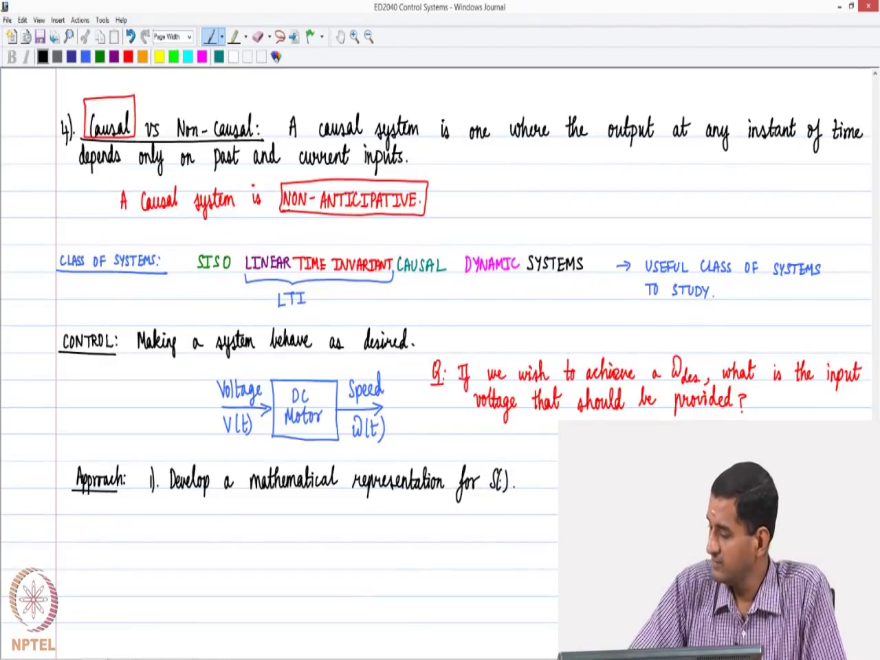 ED2040 Control Systems - Windows Journal
File Edit View Insert Actions Tools Help
Page Width
B I
4). Causal vs Non-Causal: A causal system is one where the output at any instant of time
depends only on past and current inputs.
A Causal system is NON-ANTICIPATIVE.
CLASS OF SYSTEMS: SISO LINEAR TIME INVARIANT CAUSAL DYNAMIC SYSTEMS → USEFUL CLASS OF SYSTEMS
TO STUDY.
LTI
CONTROL: Making a system behave as desired.
Voltage
V(t)
DC
Motor
Speed
ω(t)
Q: If we wish to achieve a ω des, what is the input
voltage that should be provided?
Approach: 1). Develop a mathematical representation for S(·).
NPTEL